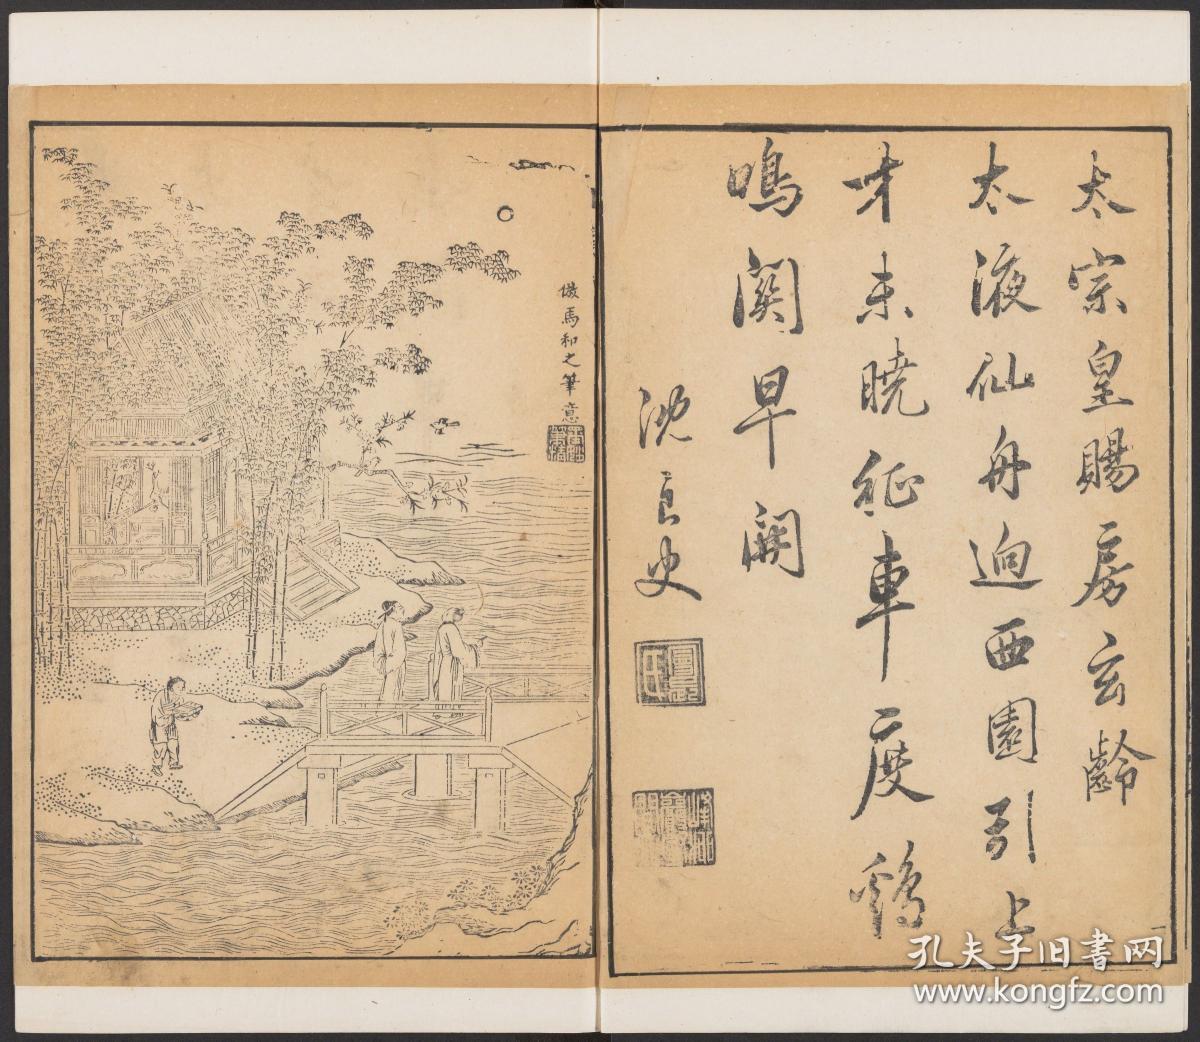 太宗皇賜房玄齡
太液仙舟迥西園引上
才未曉征車度鷄
鳴關早開
沈良史
倣馬和之筆意
孔夫子旧书网
www.kongfz.com